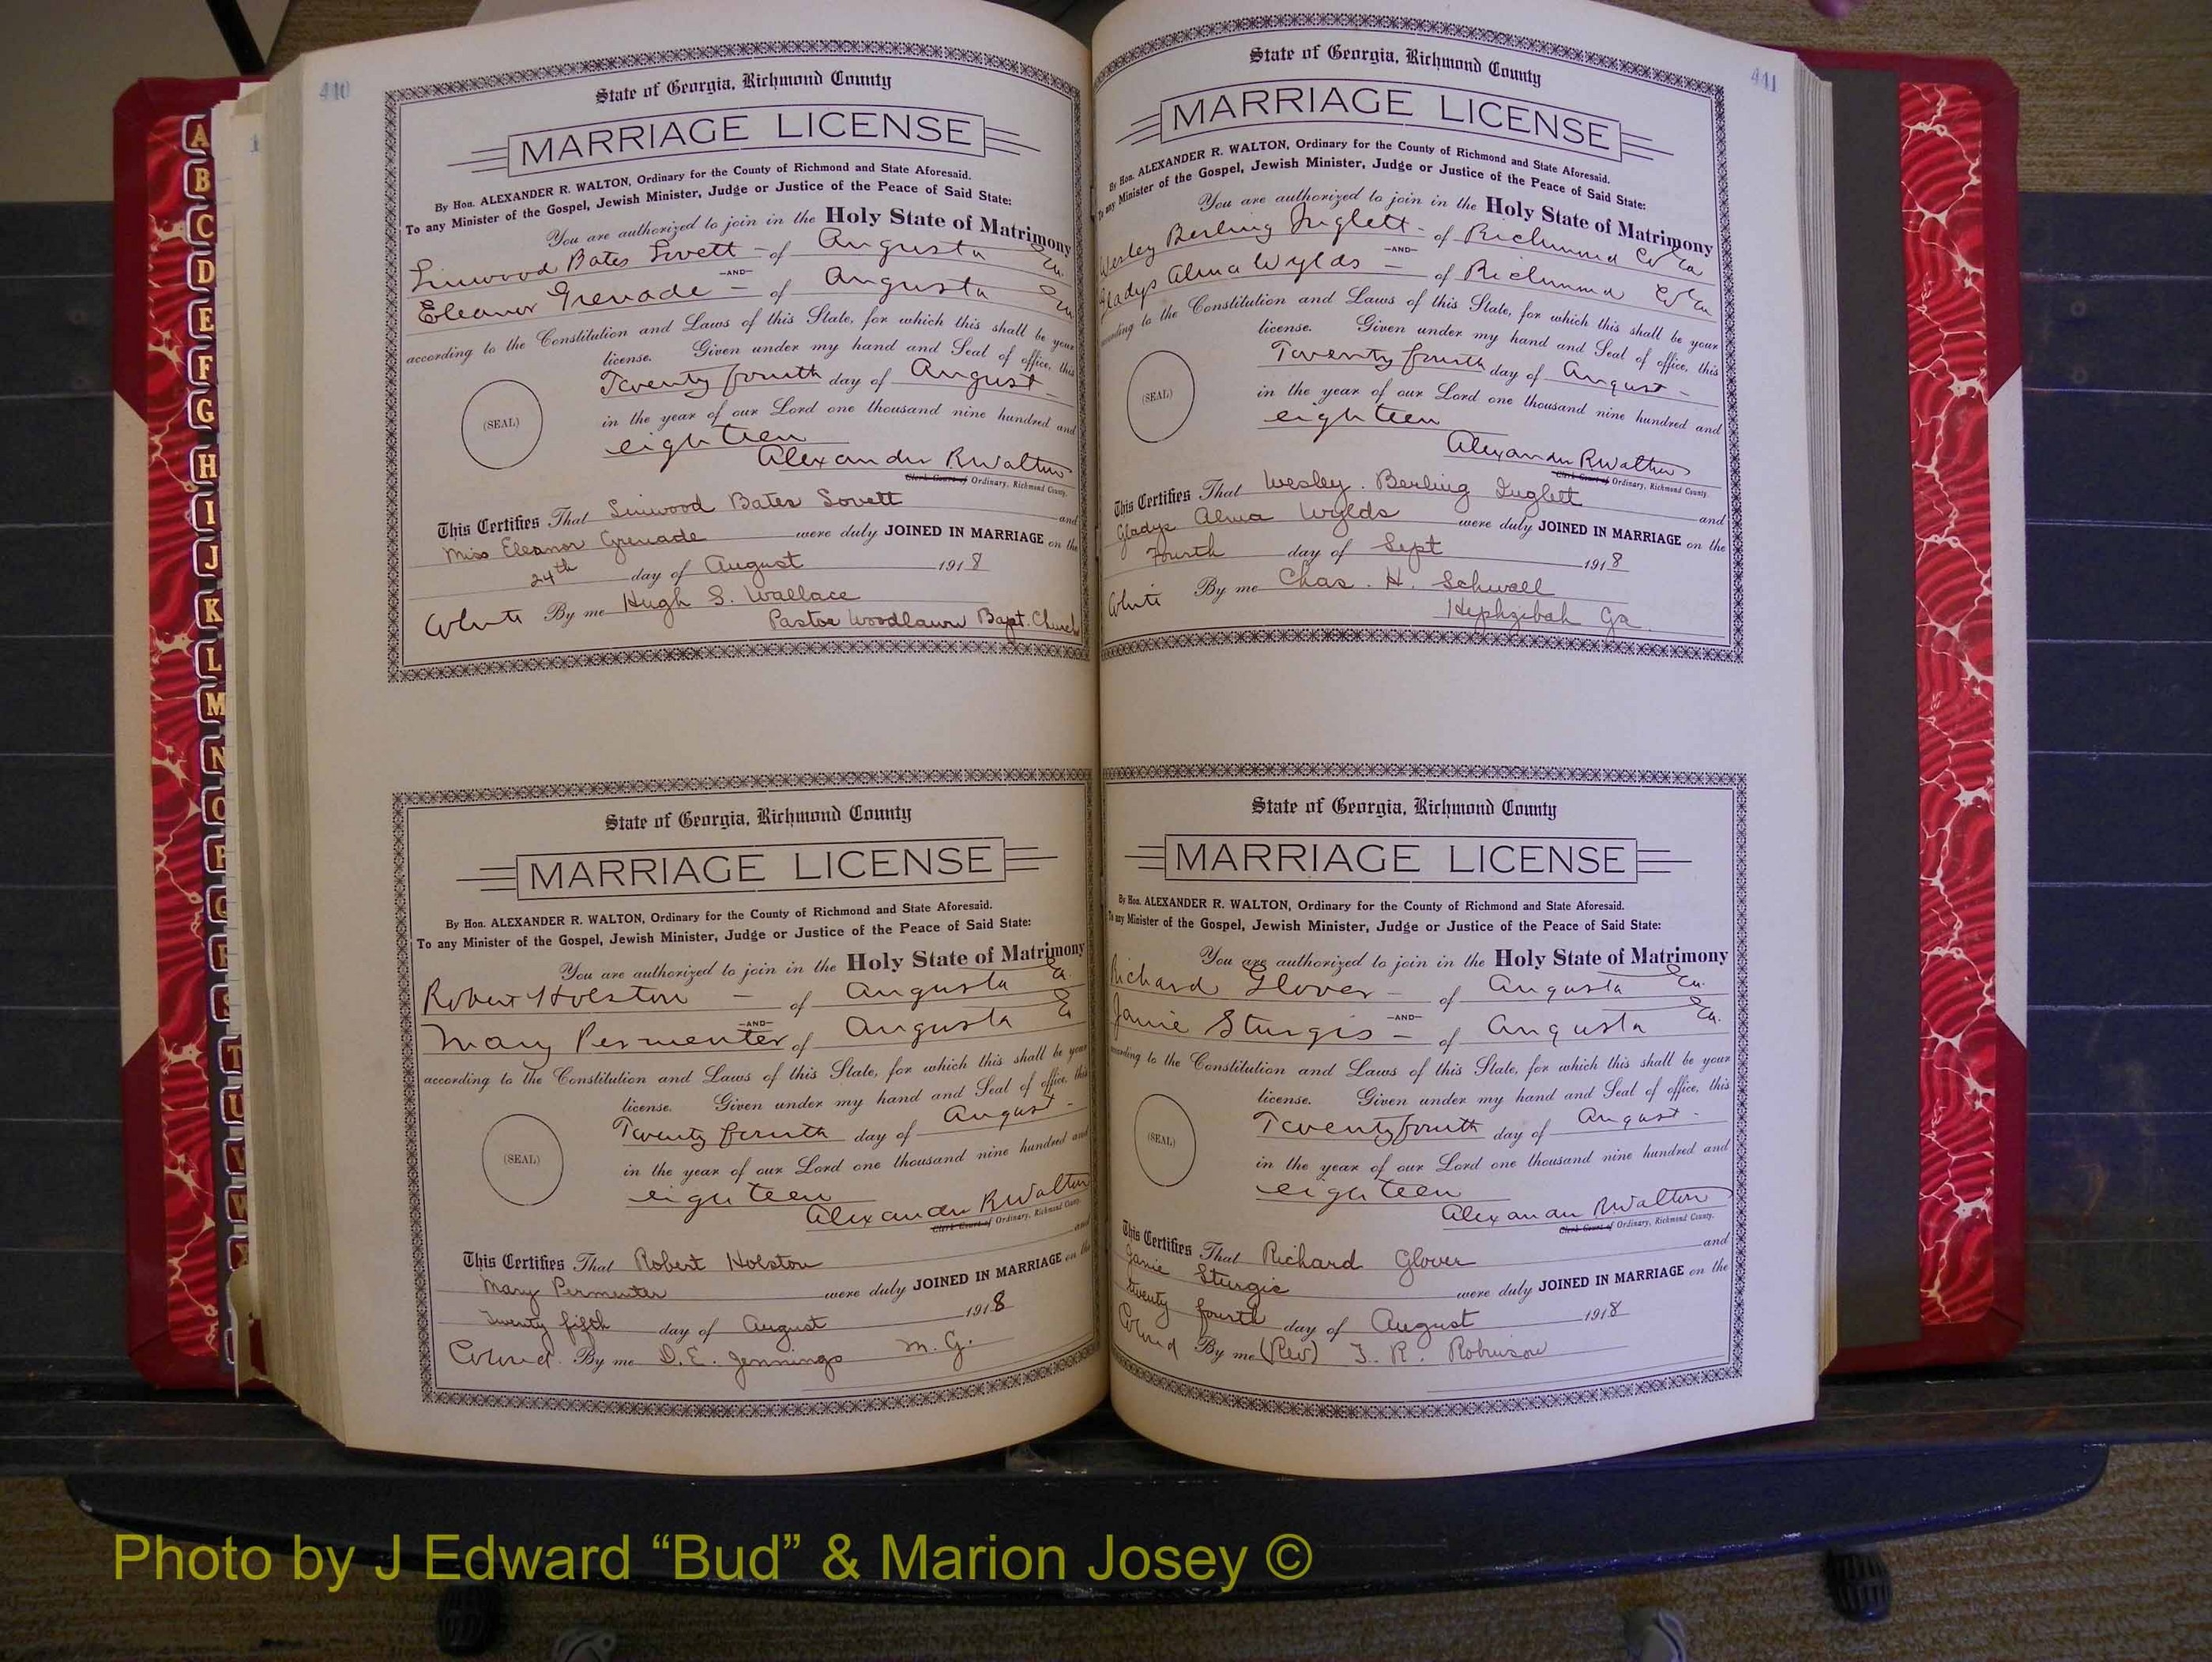 440
State of Georgia, Richmond County
MARRIAGE LICENSE
By Hon. ALEXANDER R. WALTON, Ordinary for the County of Richmond and State Aforesaid.
To any Minister of the Gospel, Jewish Minister, Judge or Justice of the Peace of Said State:
You are authorized to join in the Holy State of Matrimony
Linwood Bates Lovett - of Augusta Ga.
-AND-
Eleanor Grenade - of Augusta Ga
according to the Constitution and Laws of this State, for which this shall be your
license. Given under my hand and Seal of office, this
Twenty fourth day of August -
(SEAL)
in the year of our Lord one thousand nine hundred and
eighteen
Alexander R Walton
Clerk Court of Ordinary, Richmond County.
This Certifies That Linwood Bates Lovett and
Miss Eleanor Grenade were duly JOINED IN MARRIAGE on the
24th day of August 1918
White By me Hugh S. Wallace
Pastor Woodlawn Bapt. Church
State of Georgia, Richmond County
MARRIAGE LICENSE
By Hon. ALEXANDER R. WALTON, Ordinary for the County of Richmond and State Aforesaid.
To any Minister of the Gospel, Jewish Minister, Judge or Justice of the Peace of Said State:
You are authorized to join in the Holy State of Matrimony
Robert Holston - of Augusta Ga.
-AND-
Mary Permenter of Augusta Ga
according to the Constitution and Laws of this State, for which this shall be your
license. Given under my hand and Seal of office, this
Twenty fourth day of August -
(SEAL)
in the year of our Lord one thousand nine hundred and
eighteen
Alexander R Walton
Clerk Court of Ordinary, Richmond County.
This Certifies That Robert Holston and
Mary Permenter were duly JOINED IN MARRIAGE on the
Twenty fifth day of August 1918
Colored. By me D. E. Jennings M. G.
441
State of Georgia, Richmond County
MARRIAGE LICENSE
By Hon. ALEXANDER R. WALTON, Ordinary for the County of Richmond and State Aforesaid.
To any Minister of the Gospel, Jewish Minister, Judge or Justice of the Peace of Said State:
You are authorized to join in the Holy State of Matrimony
Wesley Berling Inglett - of Richmond Co Ga
-AND-
Gladys Alma Wylds - of Richmond Co Ga
according to the Constitution and Laws of this State, for which this shall be your
license. Given under my hand and Seal of office, this
Twenty fourth day of August -
(SEAL)
in the year of our Lord one thousand nine hundred and
eighteen
Alexander R Walton
Clerk Court of Ordinary, Richmond County.
This Certifies That Wesley. Berling Inglett and
Gladys Alma Wylds were duly JOINED IN MARRIAGE on the
Fourth day of Sept 1918
White By me Chas. H. Schwall
Hephzibah Ga.
State of Georgia, Richmond County
MARRIAGE LICENSE
By Hon. ALEXANDER R. WALTON, Ordinary for the County of Richmond and State Aforesaid.
To any Minister of the Gospel, Jewish Minister, Judge or Justice of the Peace of Said State:
You are authorized to join in the Holy State of Matrimony
Richard Glover - of Augusta Ga.
-AND-
Janie Sturgis - of Augusta Ga.
according to the Constitution and Laws of this State, for which this shall be your
license. Given under my hand and Seal of office, this
Twenty fourth day of August -
(SEAL)
in the year of our Lord one thousand nine hundred and
eighteen
Alexander R Walton
Clerk Court of Ordinary, Richmond County.
This Certifies That Richard Glover and
Janie Sturgis were duly JOINED IN MARRIAGE on the
twenty fourth day of August 1918
Colored By me (Rev) T. R. Robinson
A
B
C
D
E
F
G
H
I
J
K
L
M
N
O
P
Q
R
S
T
U
V
W
Photo by J Edward “Bud” & Marion Josey ©